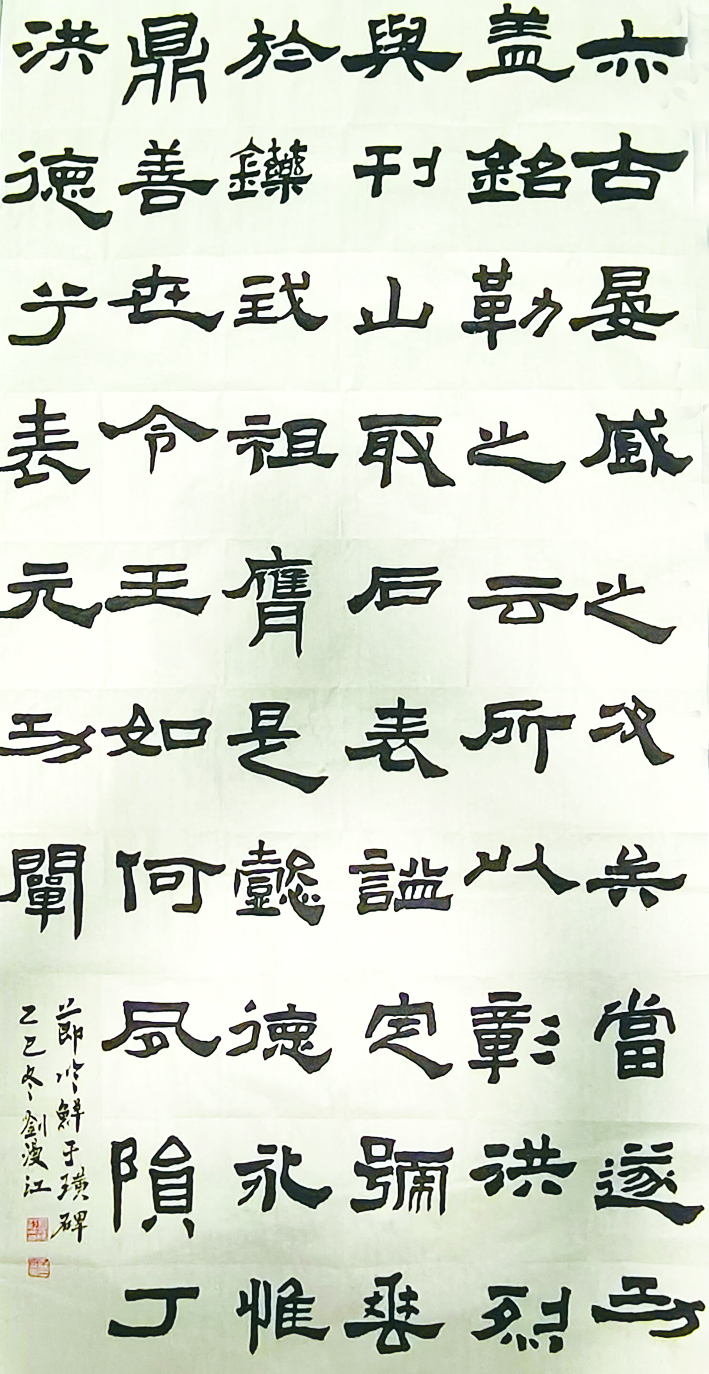 亦古晏盛之次矣當遂功
盖銘勒之云所以彰洪烈
與刊山取石表謚定號垂
於鑠我祖膺是懿德永惟
鼎善世令王如何夙隕丁
洪德乎表元功闡
節临鮮于璜碑
乙巳冬劉漫江